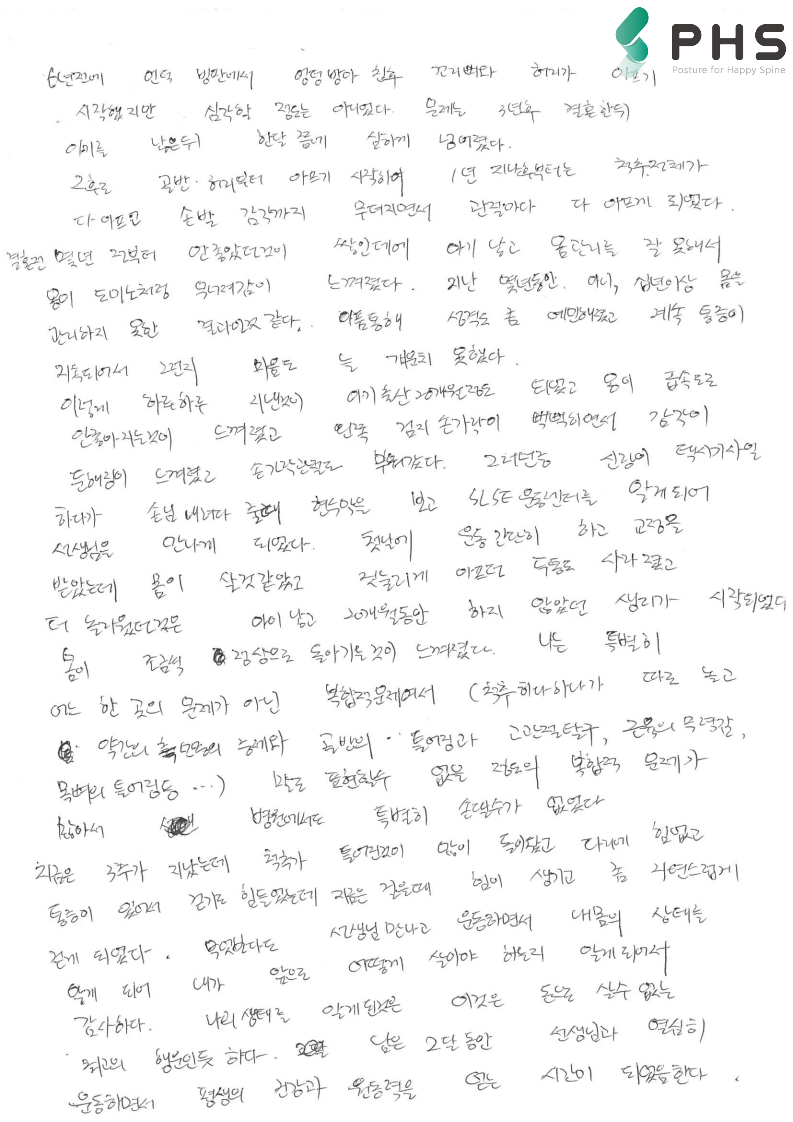 PHS
Posture for Happy Spine
6년전에 언덕 빙판에서 엉덩방아 친후 꼬리뼈와 허리가 아프기
시작했지만 심각할 정도는 아니었다. 문제는 3년후 결혼한뒤
아기를 낳은뒤 한달 쯤에 심하게 넘어졌다.
그후로 골반·허리부터 아프기 시작하여 1년 지난후부터는 척추전체가
다 아프고 손발 감각까지 무뎌지면서 관절마다 다 아프게 되었다.
결혼전 몇년 전부터 안좋았던것이 쌓인데에 아기 낳고 몸관리를 잘 못해서
몸이 도미노처럼 무너져감이 느껴졌다. 지난 몇년동안. 아니, 십년이상 몸을
관리하지 못한 결과인것 같다. 아픔통해 성격도 좀 예민해졌고 계속 통증이
지속되어서 그런지 마음도 늘 개운치 못했다.
이렇게 하루하루 지낸것이 아기출산 20개월정도 되었고 몸이 급속도로
안좋아지는것이 느껴졌고 왼쪽 검지 손가락이 뻑뻑하면서 감각이
둔해짐이 느껴졌고 손가락관절도 부어갔다. 그러던중 신랑이 택시기사일
하다가 손님 내려다 줄때 현수막을 보고 SLSE 운동센터를 알게되어
선생님을 만나게 되었다. 첫날에 운동 간단히 하고 교정을
받았는데 몸이 살것같았고 짓눌리게 아프던 두통도 사라졌고
더 놀라웠던것은 아이 낳고 20개월동안 하지 않았던 생리가 시작되었다
몸이 조금씩 정상으로 돌아가는것이 느껴졌다. 나는 특별히
어느 한 곳의 문제가 아닌 복합적문제여서 (척추 하나하나가 따로 놀고
약간의 증세와 골반의 틀어짐과 고관절탈구, 근육의 무력감,
목뼈의 틀어짐등 ...) 말로 표현할수 없을 정도의 복합적 문제가
많아서 병원에서도 특별히 손댈수가 없었다
지금은 3주가 지났는데 척추가 틀어진것이 많이 돌아왔고 다리에 힘없고
통증이 있어서 걷기도 힘들었는데 지금은 걸을때 힘이 생기고 좀 자연스럽게
걷게 되었다. 무엇보다도 선생님 만나고 운동하면서 내몸의 상태를
알게 되어 내가 앞으로 어떻게 살아야 하는지 알게되어서
감사하다. 나의 상태를 알게된것은 이것은 돈으로 살수 없는
최고의 행운인듯 하다. 남은 2달동안 선생님과 열심히
운동하면서 평생의 건강과 원동력을 얻는 시간이 되었음한다.